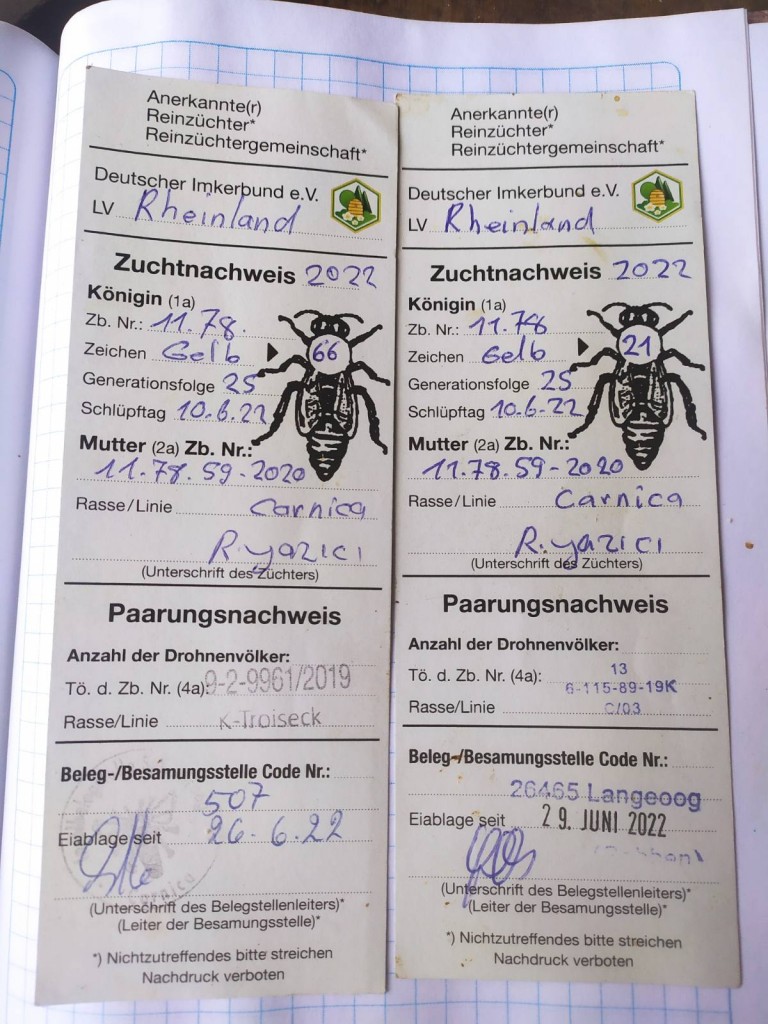 Anerkannte(r)
Reinzüchter*
Reinzüchtergemeinschaft*
Deutscher Imkerbund e.V.
LV Rheinland
Zuchtnachweis 2022
Königin (1a)
Zb. Nr.: 11.78.
Zeichen Gelb 66
Generationsfolge 25
Schlüpftag 10.6.22
Mutter (2a) Zb. Nr.:
11.78.59-2020
Rasse/Linie Carnica
R.yazici
(Unterschrift des Züchters)
Paarungsnachweis
Anzahl der Drohnenvölker:
Tö. d. Zb. Nr. (4a): 9-2-9961/2019
Rasse/Linie K-Troiseck
Beleg-/Besamungsstelle Code Nr.:
507
Eiablage seit 26.6.22
(Unterschrift des Belegstellenleiters)*
(Leiter der Besamungsstelle)*
*) Nichtzutreffendes bitte streichen
Nachdruck verboten
Anerkannte(r)
Reinzüchter*
Reinzüchtergemeinschaft*
Deutscher Imkerbund e.V.
LV Rheinland
Zuchtnachweis 2022
Königin (1a)
Zb. Nr.: 11.78
Zeichen Gelb 21
Generationsfolge 25
Schlüpftag 10.6.22
Mutter (2a) Zb. Nr.:
11.78.59-2020
Rasse/Linie Carnica
R.yazici
(Unterschrift des Züchters)
Paarungsnachweis
Anzahl der Drohnenvölker:
13
Tö. d. Zb. Nr. (4a): 6-115-89-19K
Rasse/Linie C/03
Beleg-/Besamungsstelle Code Nr.:
26465 Langeoog
Eiablage seit 29. JUNI 2022
(Unterschrift des Belegstellenleiters)*
(Leiter der Besamungsstelle)*
*) Nichtzutreffendes bitte streichen
Nachdruck verboten